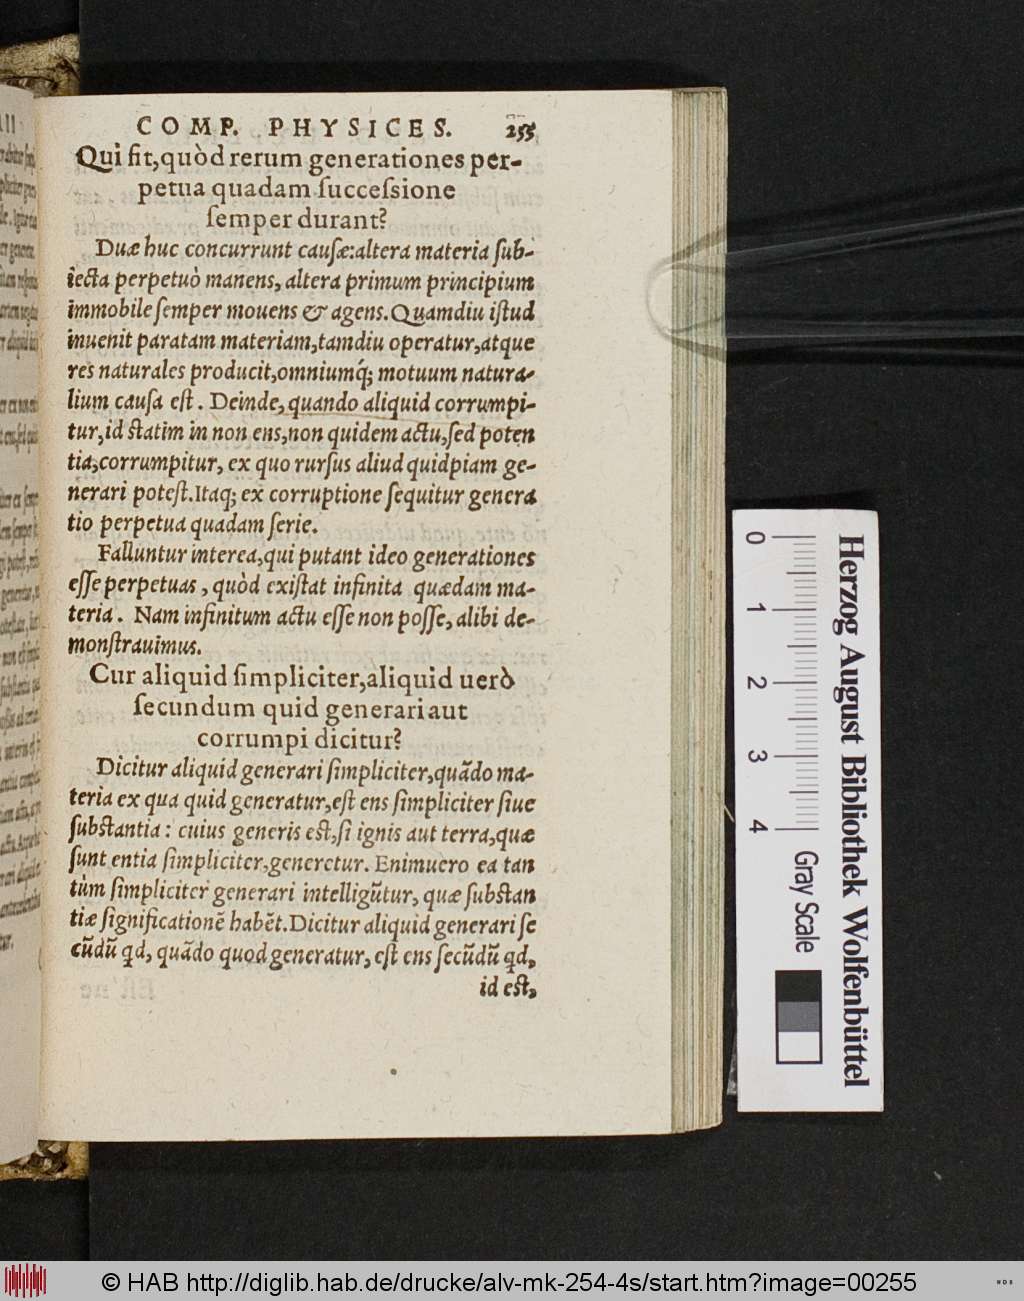 COMP. PHYSICES. 255
Qui fit, quòd rerum generationes per-
petua quadam ſucceſsione
ſemper durant?
Duæ huc concurrunt cauſæ: altera materia ſub-
iecta perpetuò manens, altera primum principium
immobile ſemper mouens & agens. Quamdiu iſtud
inuenit paratam materiam, tamdiu operatur, atque
res naturales producit, omniumq́; motuum natura-
lium cauſa eſt. Deinde, quando aliquid corrumpi-
tur, id ſtatim in non ens, non quidem actu, ſed poten
tia, corrumpitur, ex quo rurſus aliud quidpiam ge-
nerari poteſt. Itaq; ex corruptione ſequitur genera
tio perpetua quadam ſerie.
Falluntur interea, qui putant ideo generationes
eſſe perpetuas, quòd exiſtat infinita quædam ma-
teria. Nam infinitum actu eſſe non poſſe, alibi de-
monſtrauimus.
Cur aliquid ſimpliciter, aliquid uerò
ſecundum quid generari aut
corrumpi dicitur?
Dicitur aliquid generari ſimpliciter, quãdo ma-
teria ex qua quid generatur, eſt ens ſimpliciter ſiue
ſubſtantia: cuius generis eſt, ſi ignis aut terra, quæ
ſunt entia ſimpliciter, generetur. Enimuero ea tan
tùm ſimpliciter generari intelligũtur, quæ ſubſtan
tiæ ſignificationẽ habẽt. Dicitur aliquid generari ſe
cũdũ qd, quãdo quod generatur, eſt ens ſecũdũ qd,
id eſt,
0 1 2 3 4
Gray Scale
Herzog August Bibliothek Wolfenbüttel
© HAB http://diglib.hab.de/drucke/alv-mk-254-4s/start.htm?image=00255